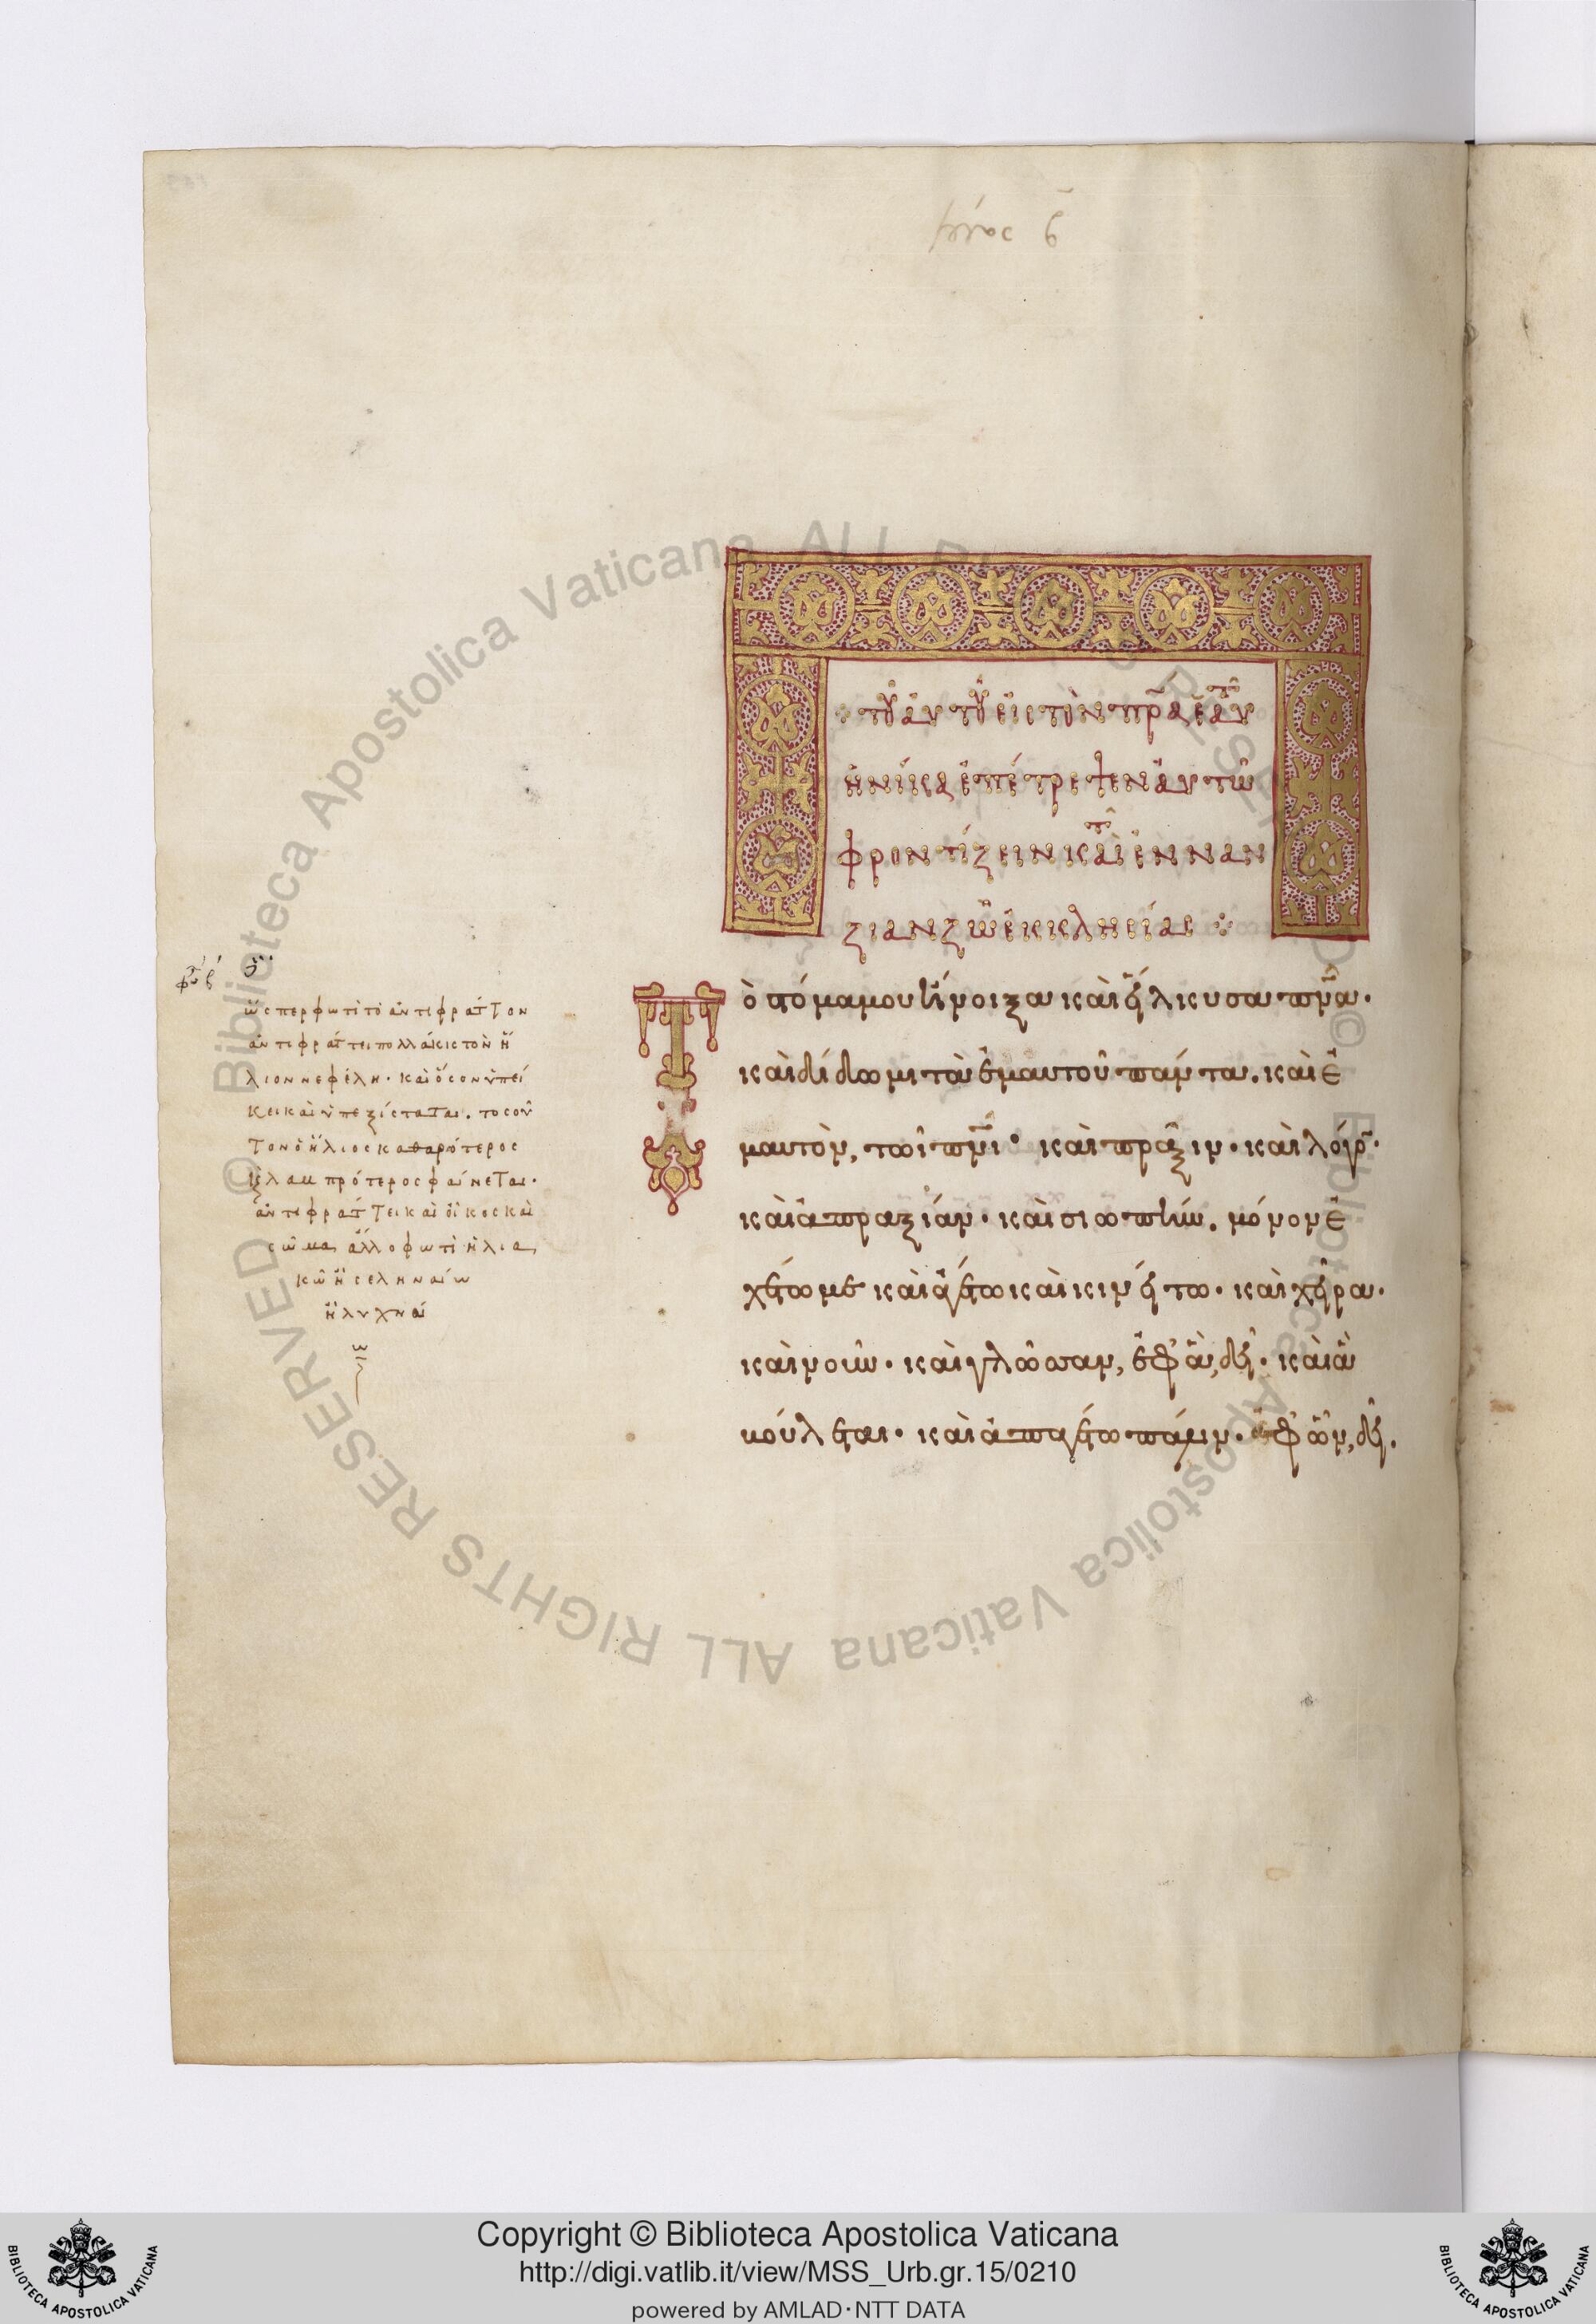 τοῦ αὐτοῦ εἰς τὸν πρ̅α ἑαυτοῦ
ἡνίκα ἐπέτρεψεν αὐτῶ
φροντίζειν κατὰ ἐν ναν
ζιανζῶ ἐκκλησίας
Τὸ στόμα μου ἤνοιξα καὶ εἵλκυσα πν̅α·
καὶ δίδωμι τὰ ἐμαυτοῦ πάντα. καὶ ἐ
μαυτὸν, τῶι πν̅ι· καὶ πράξιν· καὶ λόγον·
καὶ ἀπραξίαν· καὶ σιωπήν. μόνον ἐ
χέτω με καὶ ἀγέτω καὶ κινείτω· καὶ χεῖρα·
καὶ νοῦν· καὶ γλῶσσαν, ἐφ' ἃ, δεῖ· καὶ ἃ
βούλεται· καὶ ἀπαγέτω πάλιν· ἀφ' ὧν, δεῖ.
ὥσπερ φωτὶ τὸ ἀντιφράττον
ἀντιφράττει πολλάκις τὸν ἥ
λιον νεφέλη· καὶ ὅσον ὑπεί
κει καὶ ὑπεξίσταται. τοσοῦ
τον ὁ ἥλιος καθαρότερος
κ λαμπρότερος φαίνεται·
ἀντιφράττει καὶ οἶκος καὶ
σῶμα ἄλλο φωτὶ ἡλια
κῶ ἢ σεληναίω
ἢ λυχναί
ω
Copyright © Biblioteca Apostolica Vaticana
http://digi.vatlib.it/view/MSS_Urb.gr.15/0210
powered by AMLAD·NTT DATA
BIBLIOTECA APOSTOLICA VATICANA
BIBLIOTECA APOSTOLICA VATICANA
Biblioteca Apostolica Vaticana ALL RIGHTS RESERVED ©
Biblioteca Apostolica Vaticana ALL RIGHTS RESERVED ©